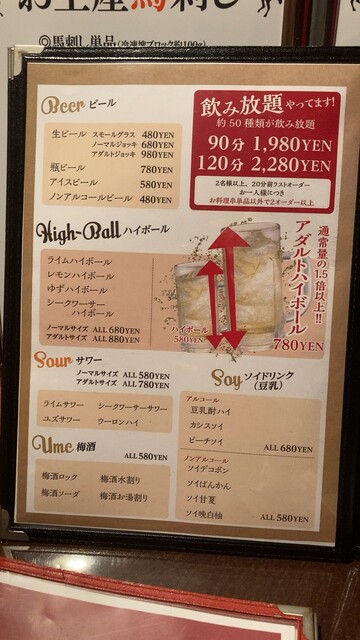 お土産馬刺し
◎馬刺し単品(冷凍塊ブロック約100g)
Beer ビール
生ビール スモールグラス 480YEN
ノーマルジョッキ 680YEN
アダルトジョッキ 980YEN
瓶ビール 780YEN
アイスビール 580YEN
ノンアルコールビール 480YEN
飲み放題やってます!
約50種類が飲み放題
90分 1,980YEN
120分 2,280YEN
2名様以上、20分前ラストオーダー
お一人様につき
お料理串単品以外で2オーダー以上
High-Ball ハイボール
ライムハイボール
レモンハイボール
ゆずハイボール
シークワーサー
ハイボール
ノーマルサイズ ALL 680YEN
アダルトサイズ ALL 880YEN
通常量の1.5倍以上!!
アダルトハイボール
780YEN
ハイボール
580YEN
Sour サワー
ノーマルサイズ ALL 580YEN
アダルトサイズ ALL 780YEN
ライムサワー シークワーサーサワー
ユズサワー ウーロンハイ
Ume 梅酒
ALL 580YEN
梅酒ロック 梅酒水割り
梅酒ソーダ 梅酒お湯割り
Soy ソイドリンク
(豆乳)
アルコール
豆乳酎ハイ
カシスソイ
ピーチソイ
ALL 680YEN
ノンアルコール
ソイデコポン
ソイばんかん
ソイ甘夏
ソイ晩白柚
ALL 580YEN